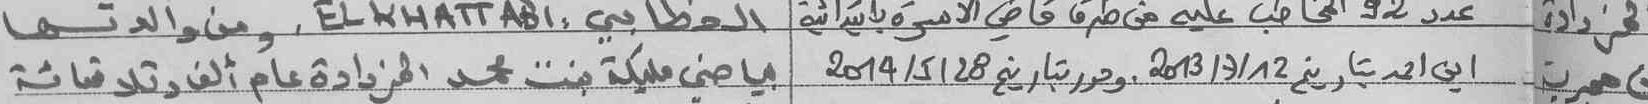 المزدادة عدد 92 المخاطب عليه من طرف قاضي الاسرة بابتدائية الخطابي: ELKHATTABI، ومن والدتها
ابن احمد بتاريخ 2013/7/12. وحرر بتاريخ 2014/5/28 مليكة بنت محمد المزدادة عام ألف وتلاتمائة